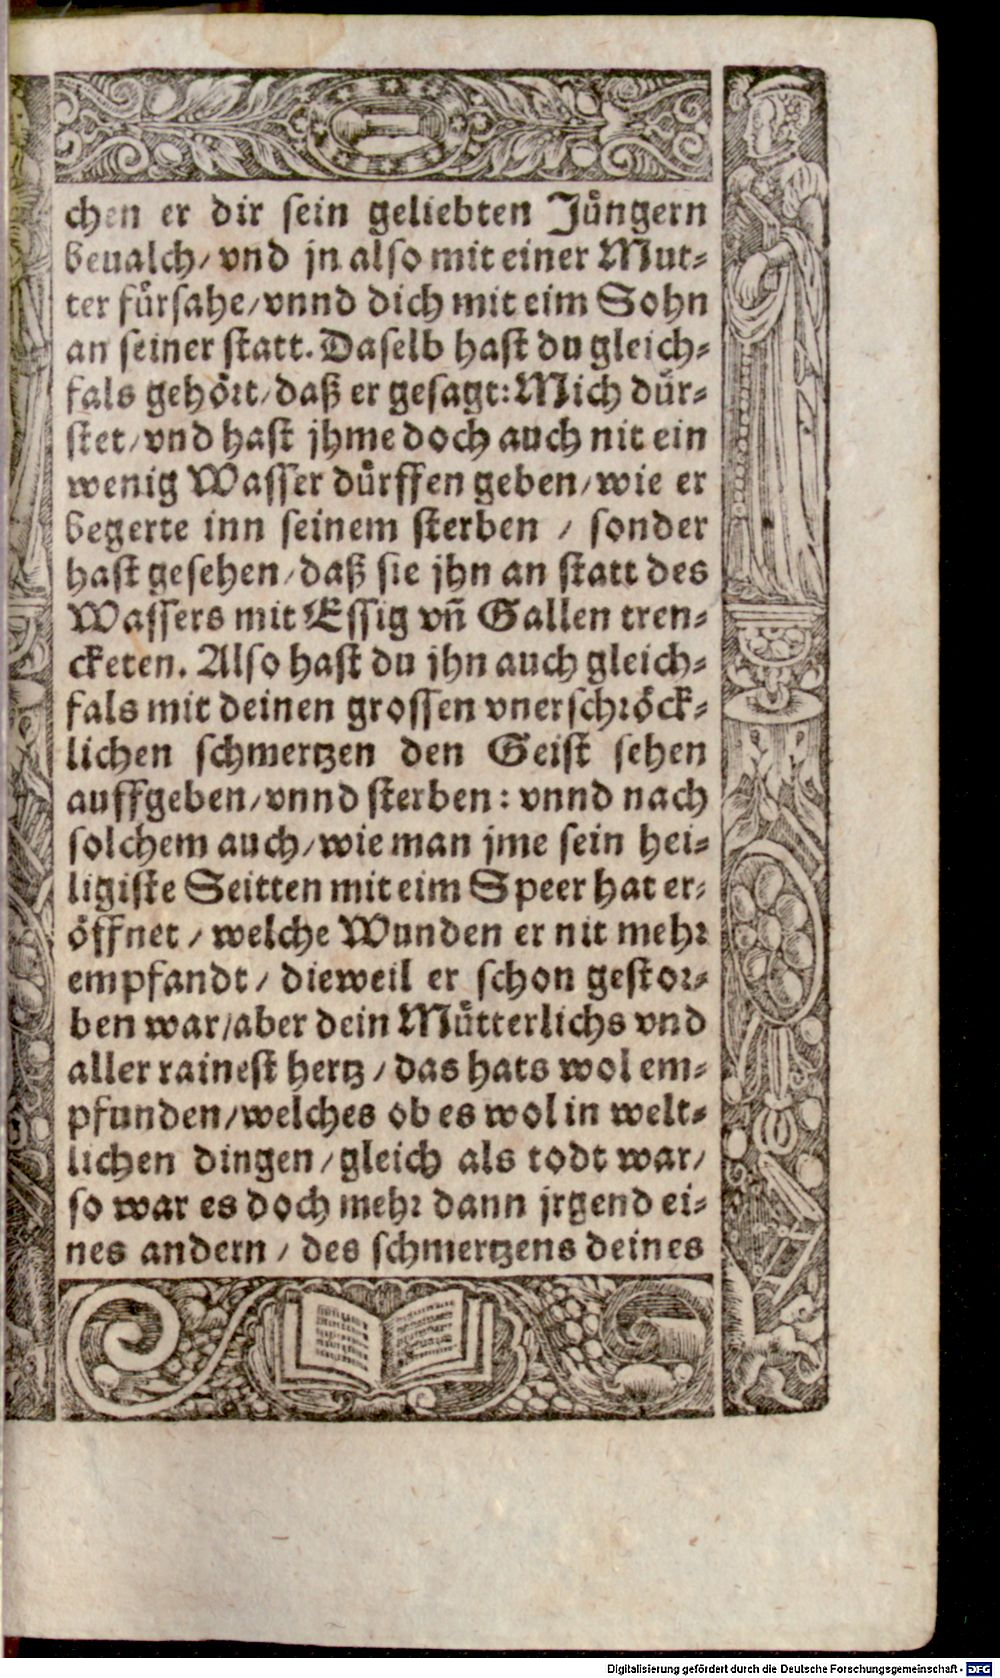 chen er dir sein geliebten Jüngern
beualch/ vnd jn also mit einer Mut-
ter fürsahe/ vnnd dich mit eim Sohn
an seiner statt. Daselb hast du gleich-
fals gehört/ daß er gesagt: Mich dür-
stet/ vnd hast jhme doch auch nit ein
wenig Wasser dürffen geben/ wie er
begerte inn seinem sterben / sonder
hast gesehen/ daß sie jhn an statt des
Wassers mit Essig vñ Gallen tren-
cketen. Also hast du jhn auch gleich-
fals mit deinen grossen vnerschröck-
lichen schmertzen den Geist sehen
auffgeben/ vnnd sterben: vnnd nach
solchem auch/ wie man jme sein hei-
ligiste Seitten mit eim Speer hat er-
öffnet / welche Wunden er nit mehr
empfandt / dieweil er schon gestor-
ben war/ aber dein Mütterlichs vnd
aller rainest hertz / das hats wol em-
pfunden/ welches ob es wol in welt-
lichen dingen / gleich als todt war/
so war es doch mehr dann jrgend ei-
nes andern / des schmertzens deines
Digitalisierung gefördert durch die Deutsche Forschungsgemeinschaft - DFG